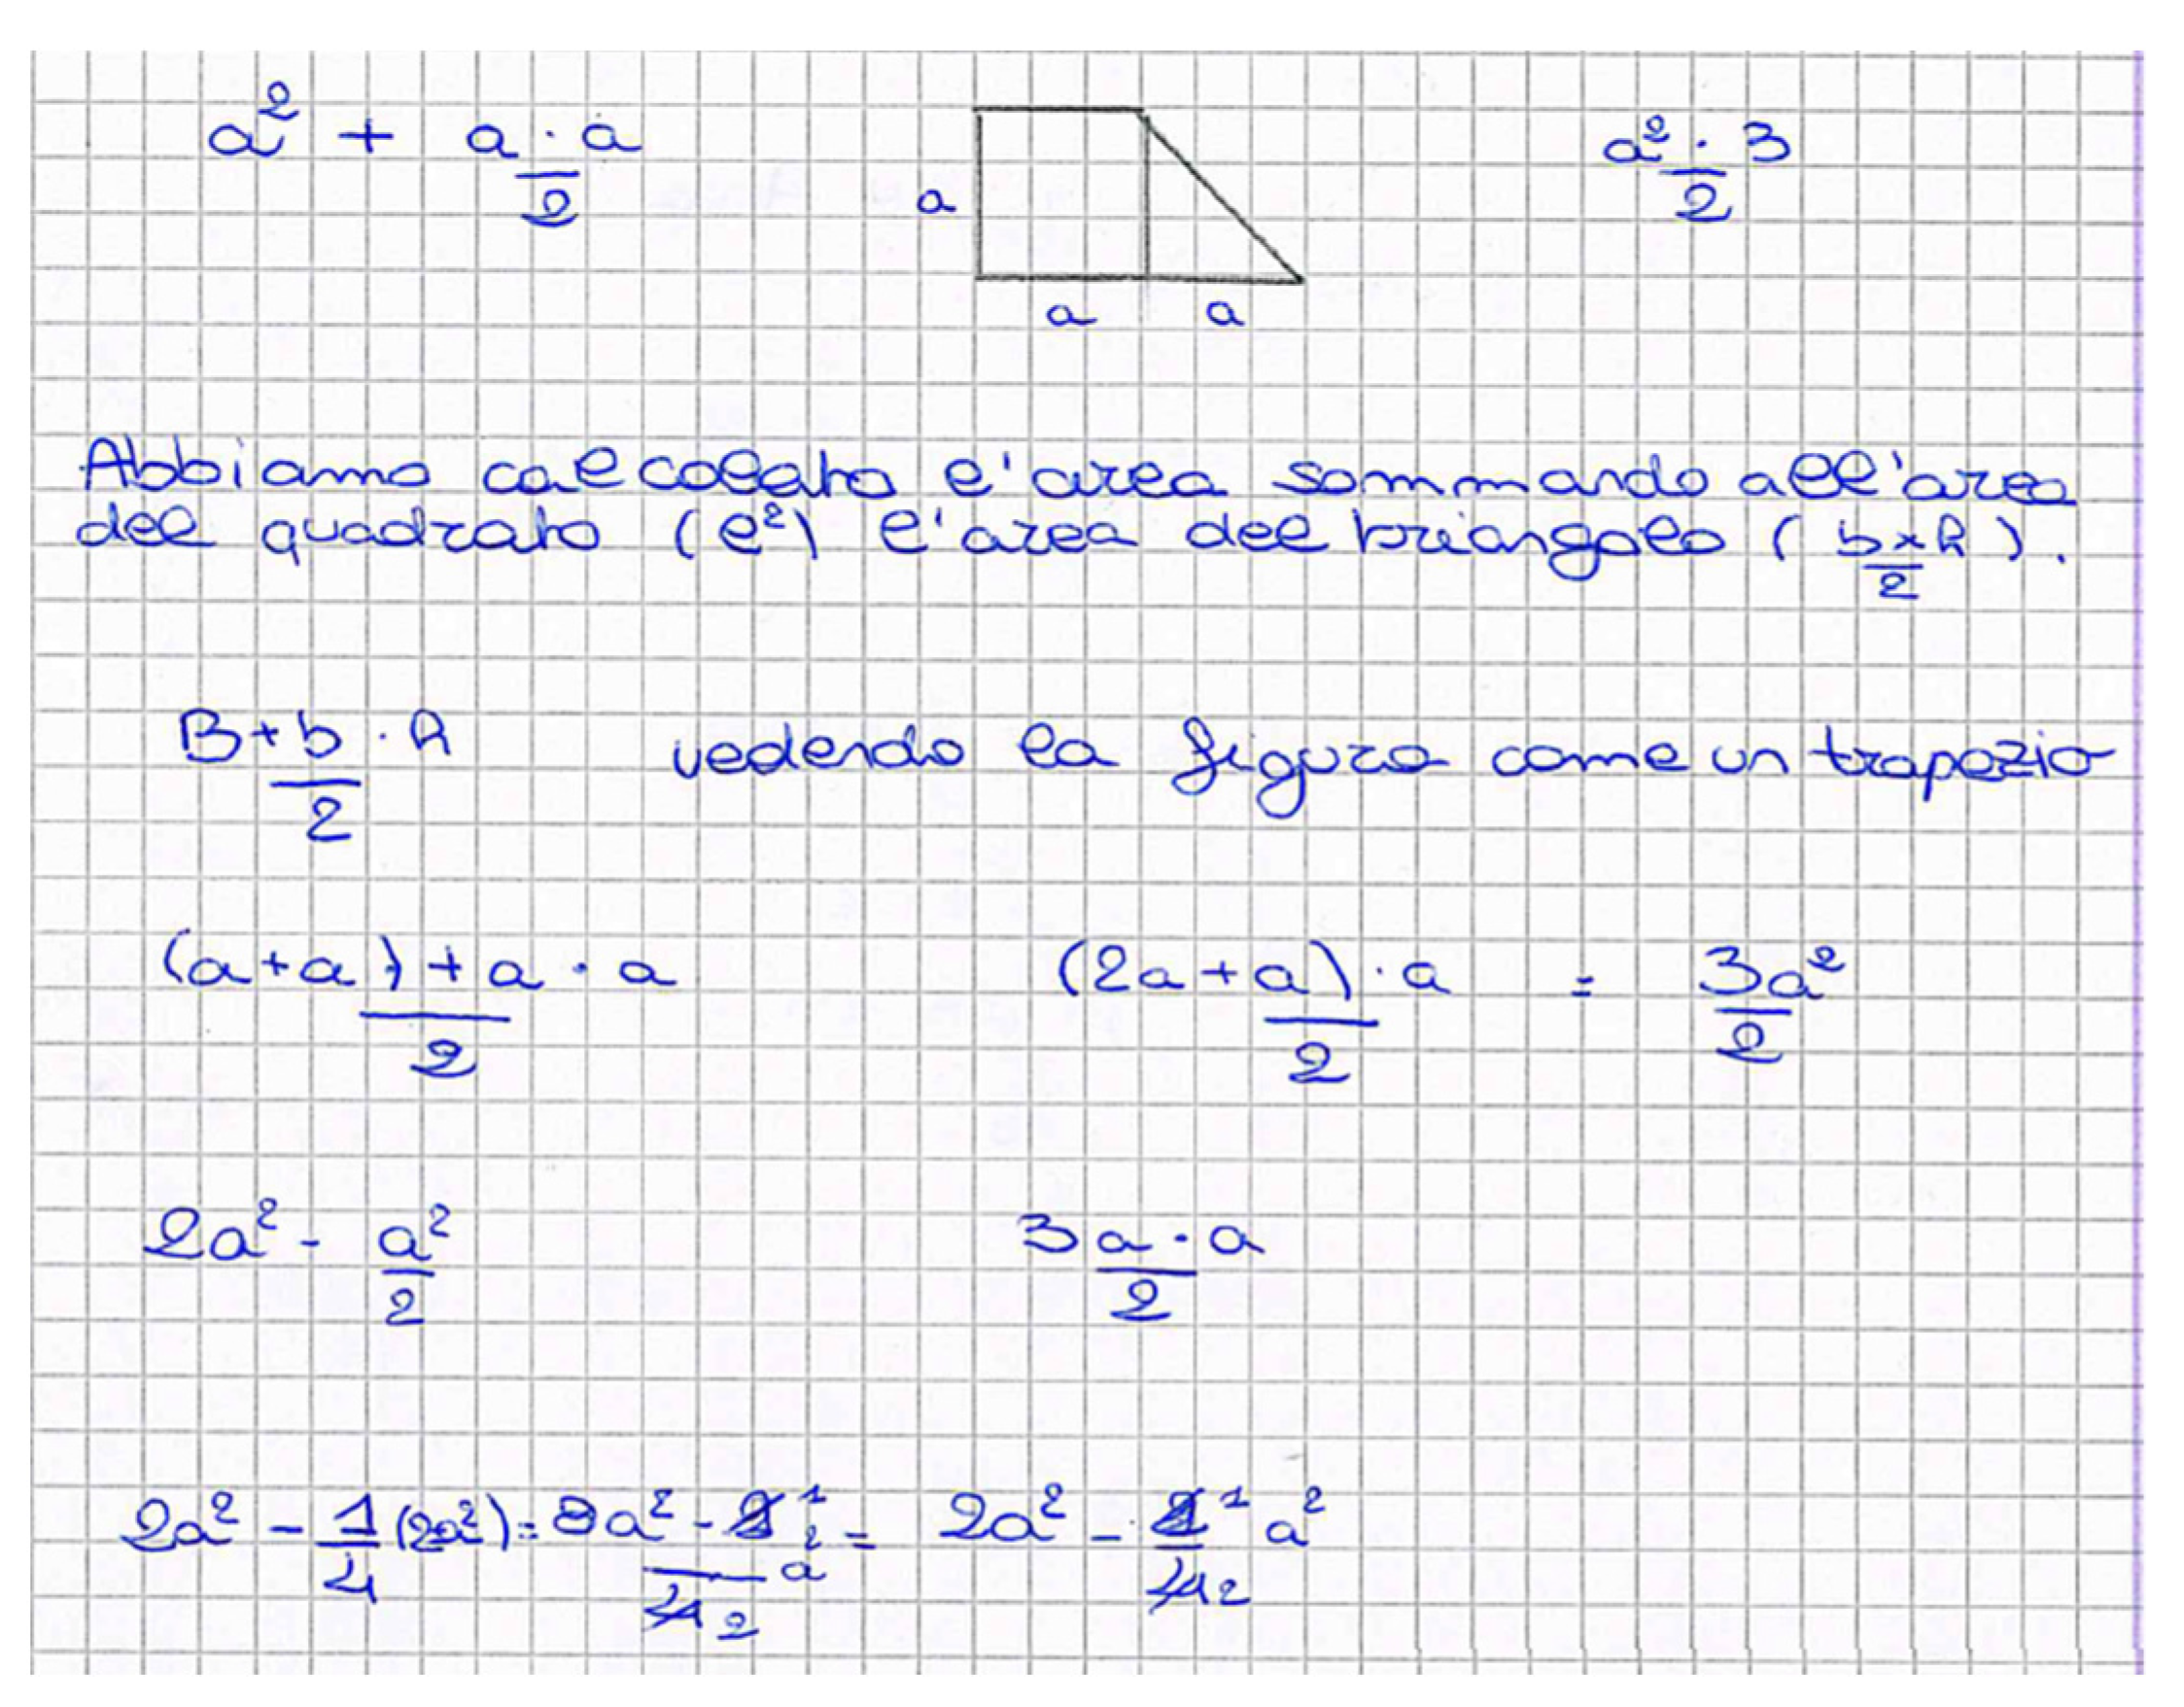 a² + a · a / 2
a² · 3 / 2
a
a a
Abbiamo calcolato l'area sommando all'area
del quadrato (l²) l'area del triangolo ( b×h / 2 ).
B+b · h / 2 vedendo la figura come un trapezio
(a+a) + a · a / 2 (2a+a) · a / 2 = 3a² / 2
2a² - a² / 2 3a · a / 2
2a² - 1/4 (2a²) = 8a² - 2 1 / 4 2 a² = 2a² - 2 1 / 4 2 a²